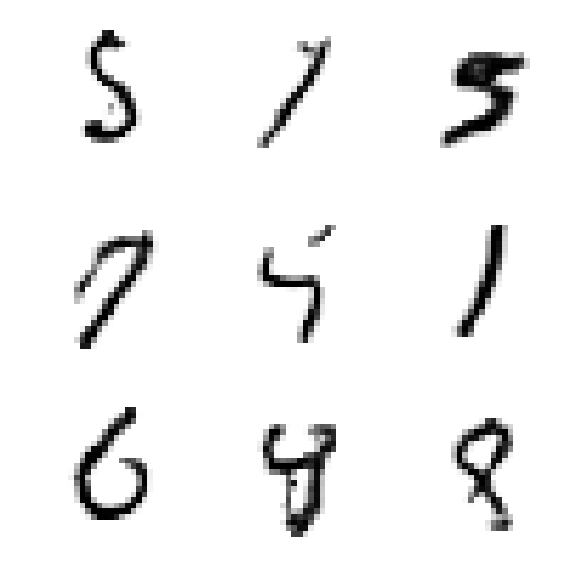 5 7 5
7 5 1
6 8 8